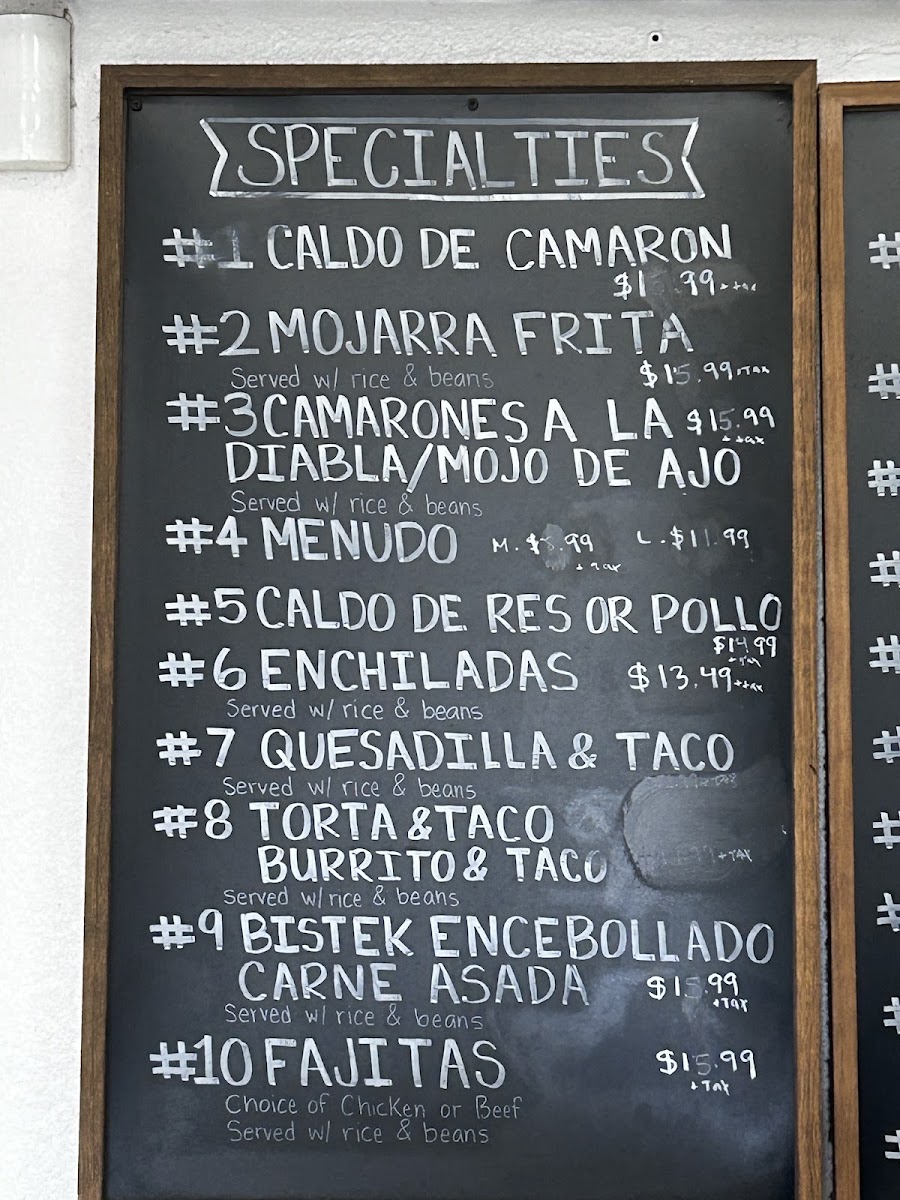 SPECIALTIES
#1 CALDO DE CAMARON
+ tax
#2 MOJARRA FRITA
Served w/ rice & beans $15.99 +TAX
#3 CAMARONES A LA $15.99
+ tax
DIABLA/MOJO DE AJO
Served w/ rice & beans
#4 MENUDO M. L. $11.99
+ tax
#5 CALDO DE RES OR POLLO
$14.99
+ tax
#6 ENCHILADAS $13.49 + tax
Served w/ rice & beans
#7 QUESADILLA & TACO
Served w/ rice & beans
#8 TORTA & TACO
BURRITO & TACO +TAX
Served w/ rice & beans
#9 BISTEK ENCEBOLLADO
CARNE ASADA $15.99
+TAX
Served w/ rice & beans
#10 FAJITAS $15.99
+TAX
Choice of Chicken or Beef
Served w/ rice & beans